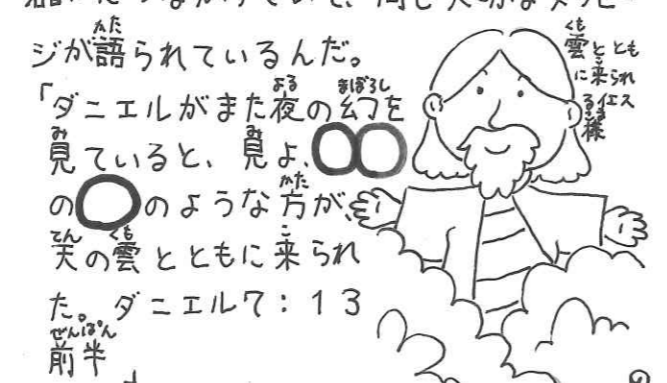 ジが語られているんだ。
「ダニエルがまた夜の幻を
見ていると、見よ、〇〇
の〇のような方が、
天の雲とともに来られ
た。ダニエル7:13
前半
雲ととも
に来られ
るイエス
様